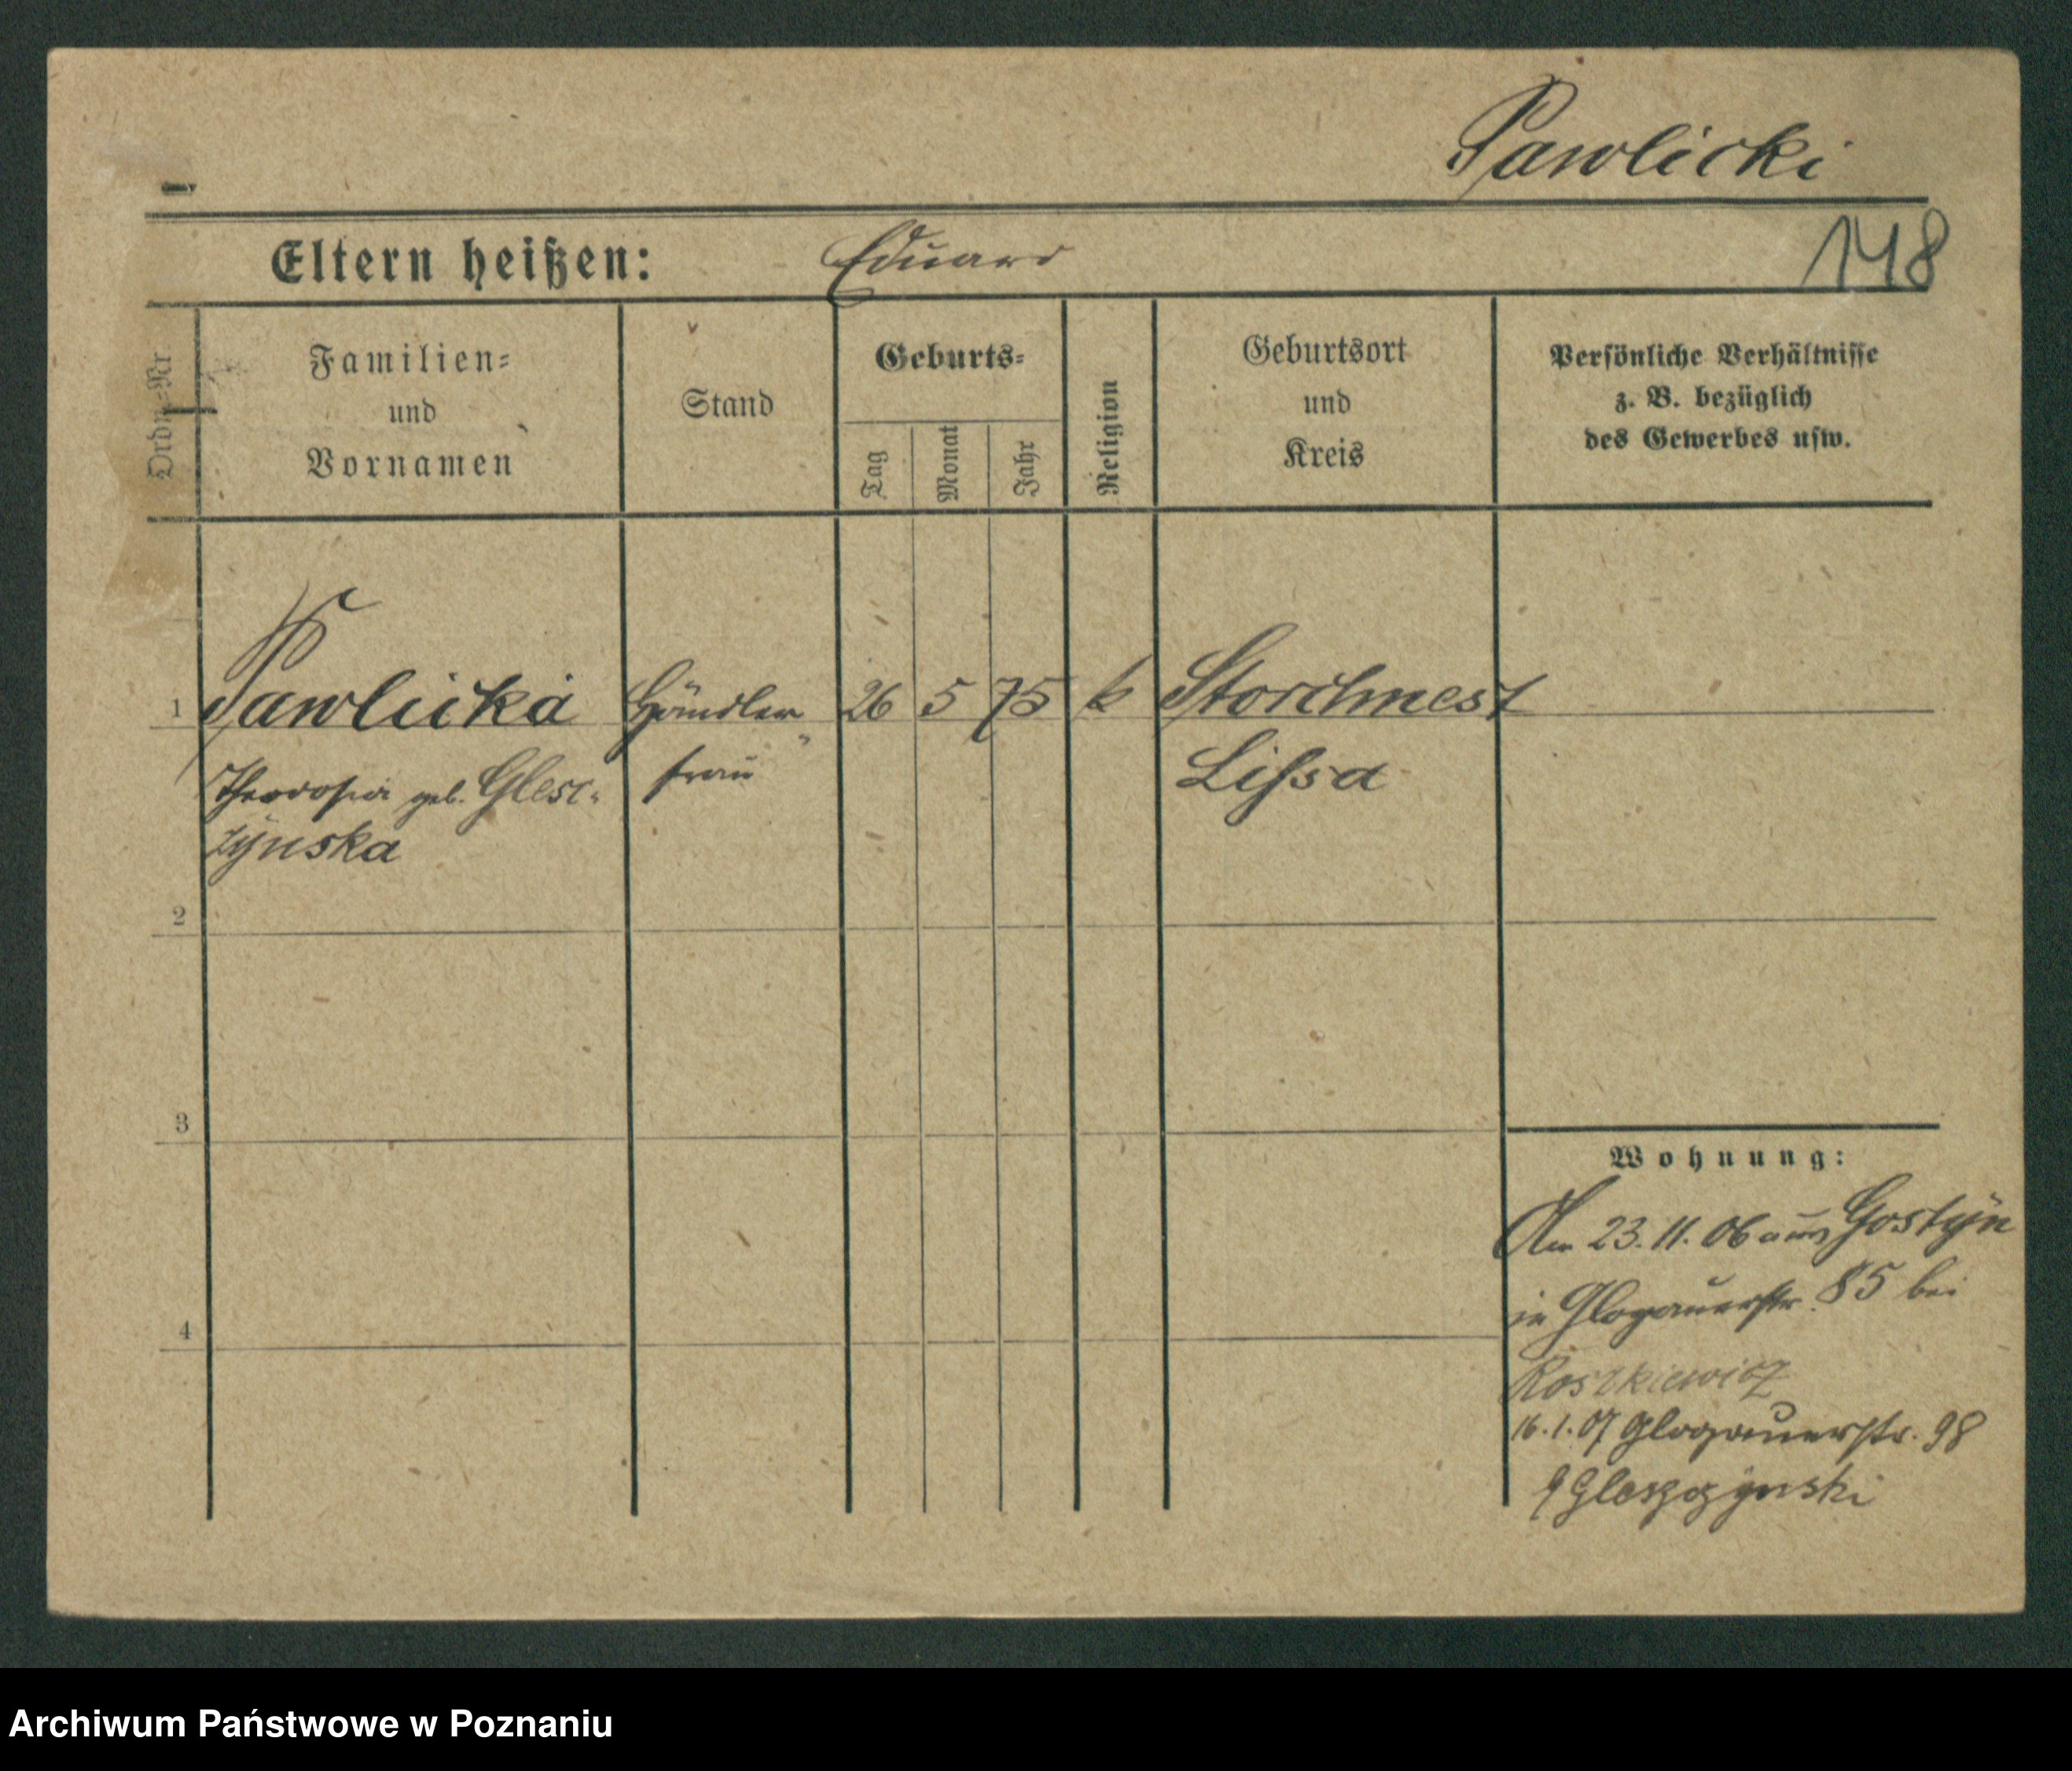 Pawlicki
Eltern heißen: Eduard
148
Ordn.-Nr.
Familien-
und
Vornamen
Stand
Geburts-
Tag
Monat
Jahr
Religion
Geburtsort
und
Kreis
Persönliche Verhältnisse
z. B. bezüglich
des Gewerbes usw.
1 Pawlicka Händler 26 5 75 k Storchnest
Theodosia geb. Glesc- frau Lissa
zynska
2
3
4
Wohnung:
Am 23. 11. 06 aus Gostyn
in Glogauerstr. 85 bei
Roszkiewicz
16.1.07 Glogauerstr. 98
Gleszczynski
Archiwum Państwowe w Poznaniu